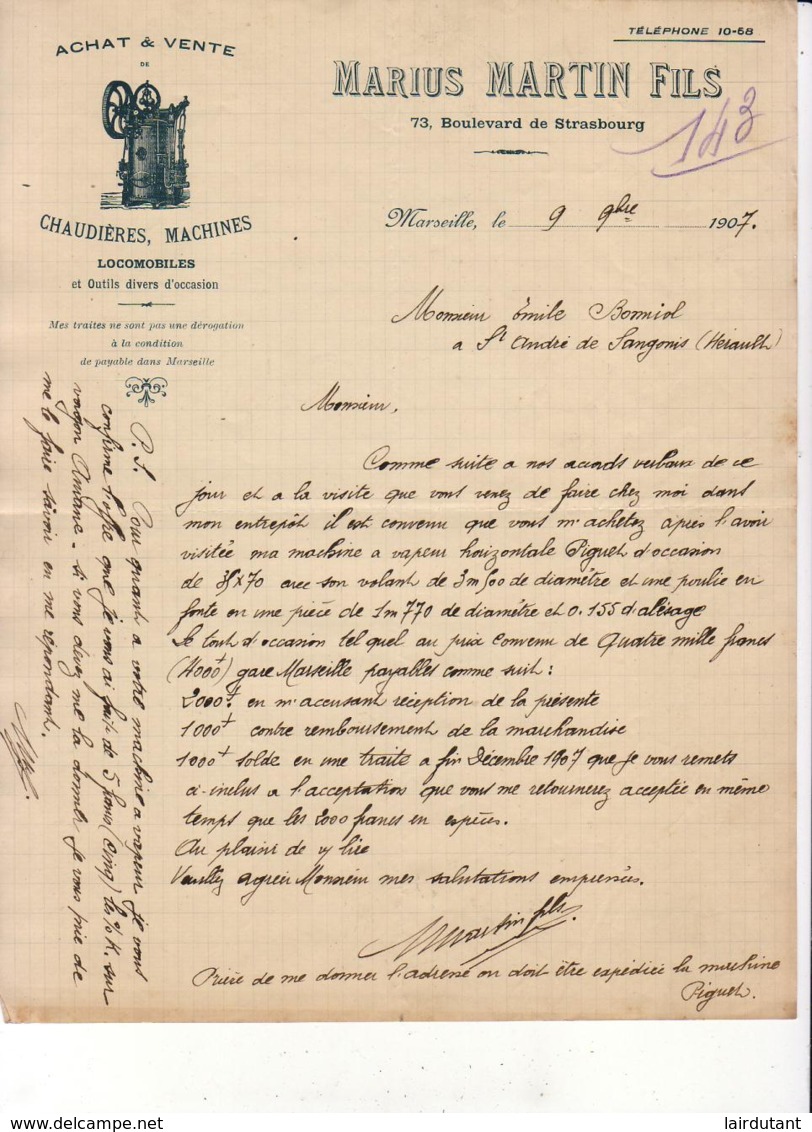 TÉLÉPHONE 10-68
ACHAT & VENTE
DE
CHAUDIÈRES, MACHINES
LOCOMOBILES
et Outils divers d'occasion
Mes traites ne sont pas une dérogation
à la condition
de payable dans Marseille
MARIUS MARTIN FILS
73, Boulevard de Strasbourg
143
Marseille, le 9 9bre 1907.
Monsieur Émile Bonniol
a St André de Sangonis (Hérault)
Monsieur,
Comme suite a nos accords verbaux de ce
jour et a la visite que vous venez de faire chez moi dans
mon entrepôt il est convenu que vous m'achetez apres l'avoir
visitée ma machine a vapeur horizontale Piguet d'occasion
de 35x70 avec son volant de 3m500 de diamétre et une poulie en
fonte en une pièce de 1m770 de diamétre et 0.155 d'alésage
Le tout d'occasion tel quel au prix convenu de Quatre mille francs
(4000f) gare Marseille payables comme suit :
2000f. en m'accusant réception de la présente
1000f contre remboursement de la marchandise
1000f solde en une traite a fin Décembre 1907 que je vous remets
ci-inclus a l'acceptation que vous me retournerez acceptée en même
temps que les 2000 francs en espèces.
Au plaisir de vs lire
Veuillez agréer Monsieur mes salutations empressées.
M Martin fils
Prière de me donner l'adresse ou doit être expédiée la machine
Piguet.
P.S. Pour quant a votre machine a vapeur je vous
confirme l'offre que je vous ai fait de 5 francs (cinq) les % K. sur
vagon Aniane. si vous devez me la donner je vous prie de
me le faire savoir en me répondant.